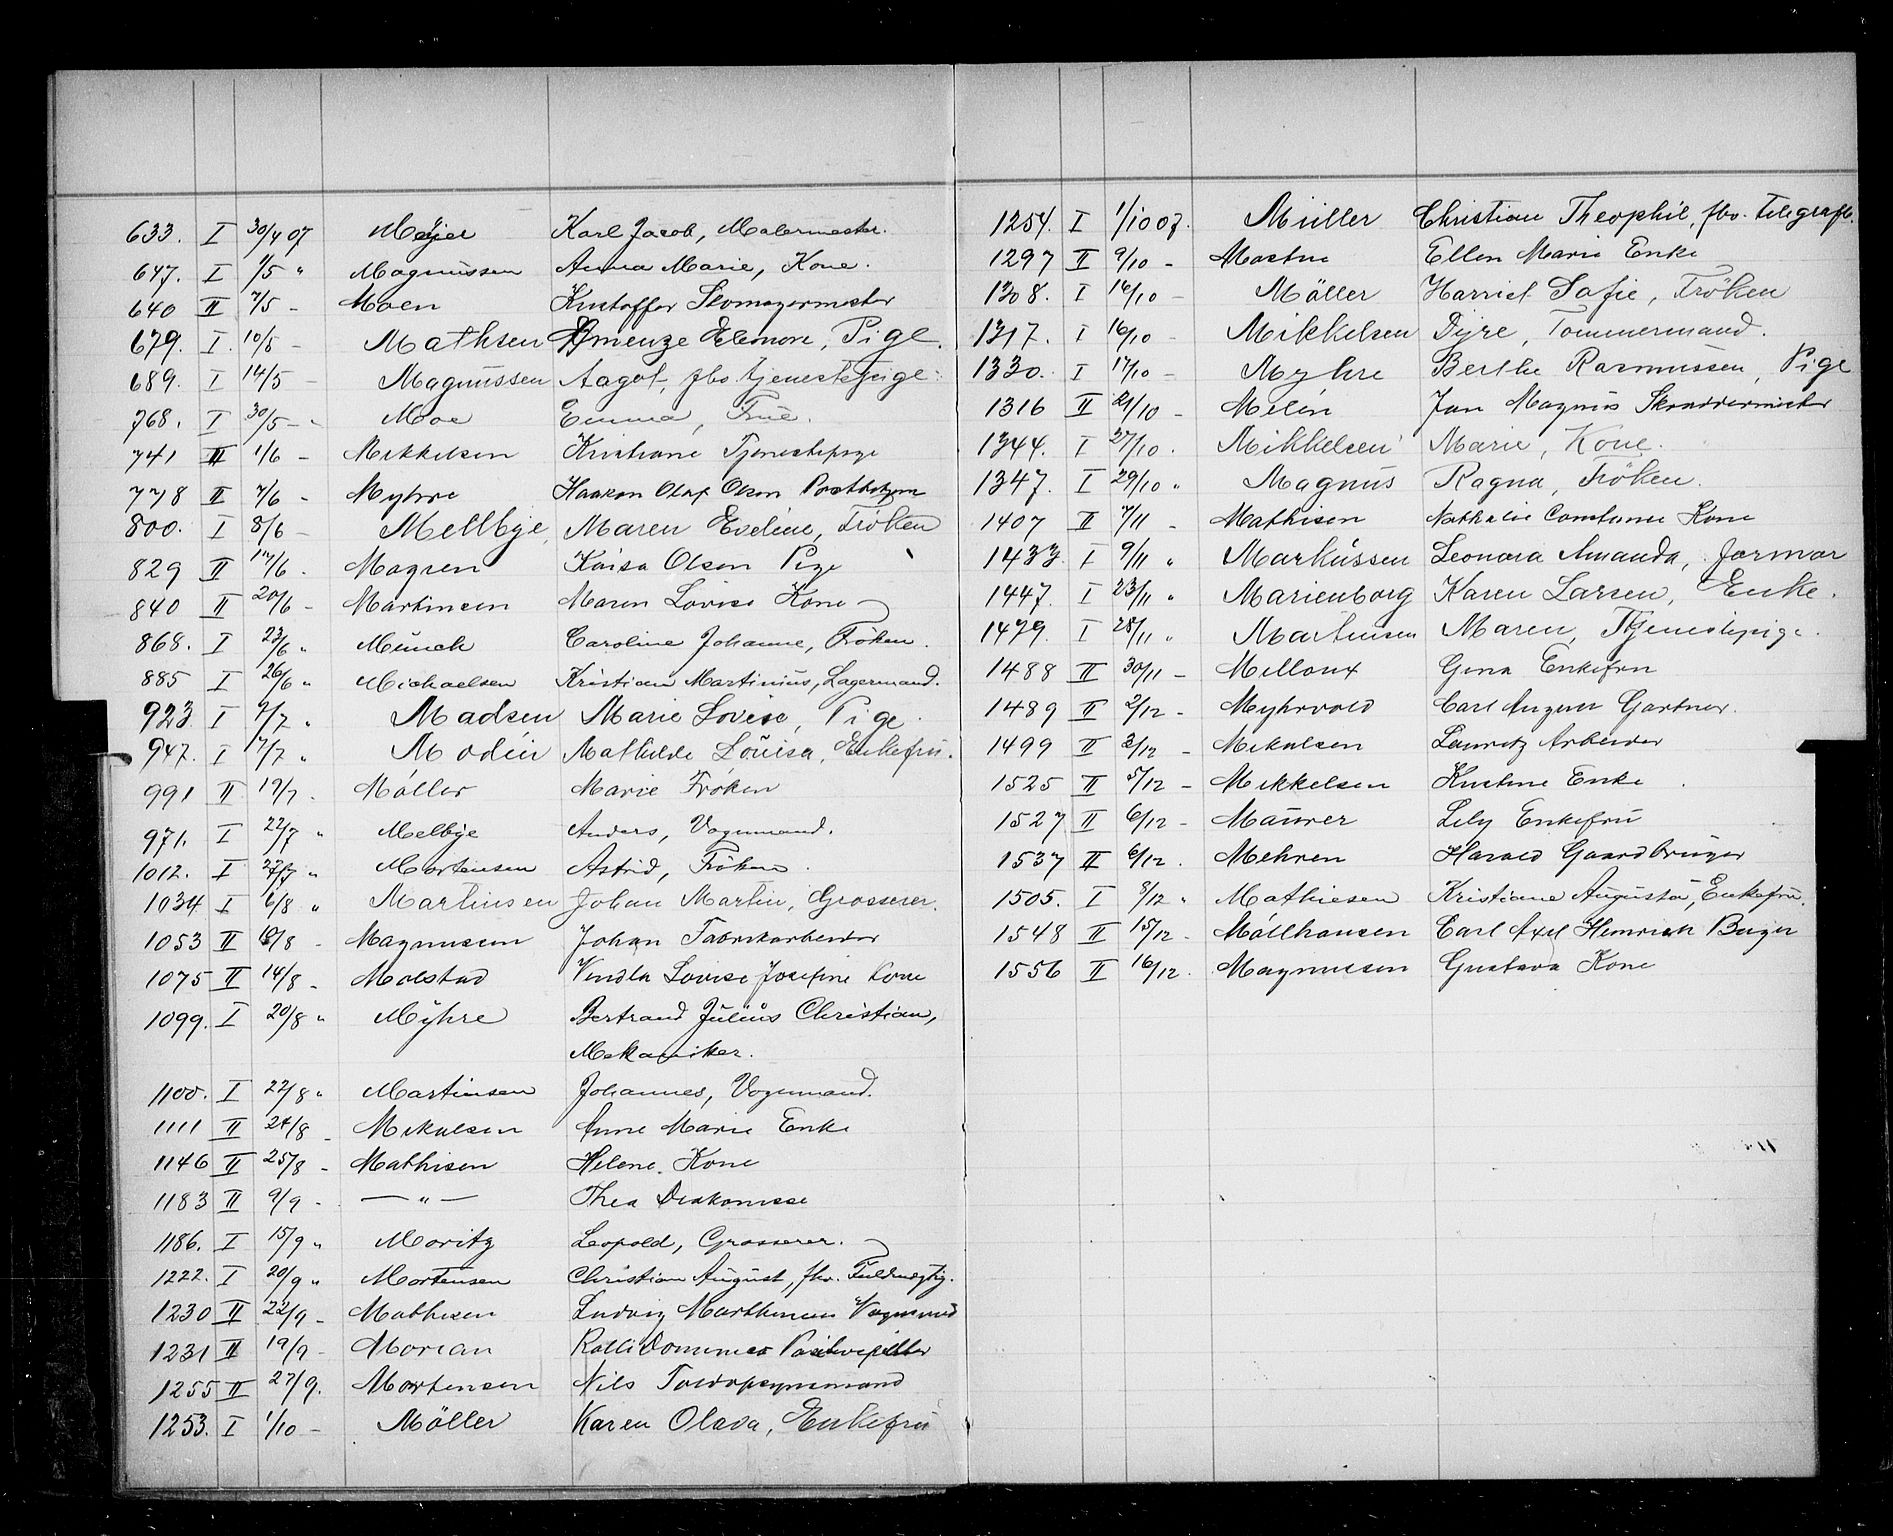 633. I 30/4 07 Meijer Karl Jacob, Malermester.
647. I 1/5 " Magnussen Anna Marie, Kone.
640 II 7/5 - Moen Kristoffer Skomagermester
679. I. 10/5 - Mathsen Eleonore, Pige.
689. I 14/5 - Magnussen Aagot, fhv. tjenestepige.
768. I 30/5 - Moe Emma, Frue.
741 II 1/6 - Mikkelsen Kristiane Tjenestepige
778 II 7/6 - Myhre Haakon Olaf Olsen
800. I 8/6 - Mellbye, Maren Eveline, Fröken
829 II 14/6 . Mogren Kaisa Olsen Pige
840 II 20/6 - Martinsen Maren Lovise Kone
868. I 23/6 " Münch Caroline Johanne, Fröken.
885 I 26/6 " Michaelsen Kristian Martinius, Lagermand.
923. I 7/7 " Madsen Marie Lovise, Pige.
947. I 17/7 " Modén Mathilde Louisa, Enkefru.
991 II 19/7 . Möller Marie Fröken
971. I 22/7 " Melbye Anders, Vognmand.
1012. I 27/7 " Mortensen Astrid, Fröken.
1034 I 6/8 " Martinsen Johan Martin, Grosserer.
1053 II 8/8 - Magnussen Johan Fabrikarbeider
1075 II 14/8 - Molstad Vendla Lovise Josefine Kone
1099. I 20/8 " Myhre Bertrand Julius Christian,
Mekaniker.
1100. I 22/8 " Martinsen Johannes, Vognmand.
1111 II 24/8 - Mikalsen Anne Marie Enke
1146 II 25/8 - Mathisen Helene. Kone
1183 II 9/9 - — " — Thea Diakonisse
1186. I 15/9 " Moritz Leopold, Grosserer.
1222. I 20/9 " Mortensen Christian August, fhv. Fuldmægtig.
1230 II 22/9 - Mathisen Ludvig Marthinius Vognmand
1231 II 19/9 - Morian Positivspiller
1255 II 27/9. Mortensen Nils Toldopsynsmand
1253. I 1/10 - Möller Karen Olava, Enkefru
1254. I 1/10 07. Müller Christian Theophil, fhv. Telegrafb.
1297 II 9/10 - Ellen Marie Enke
1308. I 14/10 - Möller Harriet Sofie, Fröken
1317. I 16/10 - Mikkelsen Dyre, Tömmermand.
1330. I 17/10 - Myhre Berthe Rasmussen, Pige
1316 II 21/10 - Melin Jan Magnus Skræddermester
1344. I 27/10. Mikkelsen Marie, Kone.
1347. I 29/10 " Magnus Ragna, Fröken.
1407 II 7/11 - Mathisen Nathalie Constance Kone
1433. I 9/11 " Markussen Leonora Amanda, Jormor
1447. I 23/11 " Marienborg Karen Larsen, Enke.
1479. I 28/11 " Martinsen Maren, Tjenestepige.
1488 II 30/11 - Milloux Gina Enkefru
1489 II 2/12 - Myhrvold Carl August Gartner.
1499 II 3/12 - Mikalsen Lauritz Arbeider
1525 II 5/12 - Mikkelsen Kristine Enke
1527 II 6/12 - Maurer Lily Enkefru
1537 II 6/12 . Mehren Harald Gaardbruger
1505. I 8/12 " Mathiesen Kristiane Augusta, Enkefru.
1548 II 15/12 - Möllhausen Carl Axel Henrich Bager
1556 II 16/12 . Magnussen Gustava Kone